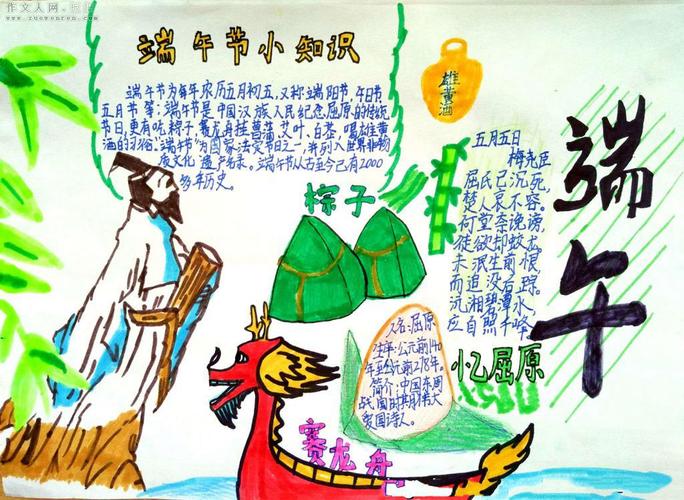 作文人网
www.zuowenren.com
端午节小知识
端午节为每年农历五月初五,又称端阳节,午日节
五月节等;端午节是中国汉族人民纪念屈原的传统
节日,更有吃粽子,赛龙舟挂菖蒲,艾叶、白芷,喝雄黄
酒的习俗."端午节"为国家法定节日之一,并列入世界非物
质文化遗产名录。端午节从古至今已有2000
多年历史。
雄黄酒
粽子
五月五日
梅尧臣
屈氏已沉死,
楚人哀不容。
何堂奈谗谤,
徒欲却蛟龙。
未泯生前恨,
而追没后踪。
沅湘碧潭水,
应自照千峰。
端午
忆屈原
人名:屈原
生年:公元前340
年至公元前278年。
简介:中国东周
战国时期伟大
爱国诗人。
赛龙舟